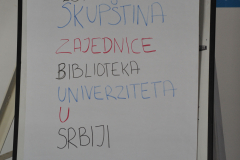 SKUPŠTINA
ZAJEDNICE
BIBLIOTEKA
UNIVERZITETA
U
SRBIJI